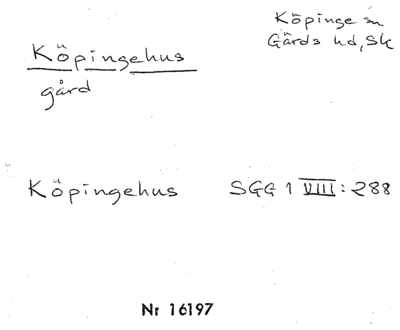 Köpinge sn
Gärds hd, Sk
Köpingehus
gård
Köpingehus SGG 1 VIII: 288
Nr 16197